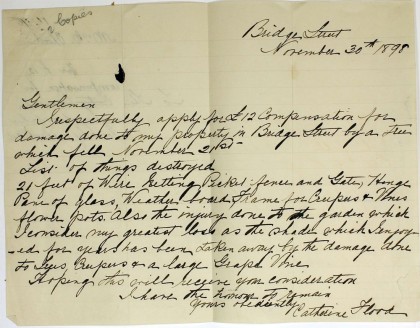 Copies
Bridge Street
November 30th 1898
Gentlemen
I respectfully apply for £12 Compensation for
damage done to my property in Bridge Street by a Tree
which fell November 21st
List of things destroyed
21 feet of Wire Netting Picket fence and Gate, Hinge
Pane of glass, Weather board Frame for Creepers & Vines
flower pots. Also the injury done to the garden which
I consider my greatest loss as the shade which I enjoy
-ed for years has been taken away by the damage done
to Creepers & a large Grape Vine
Hoping this will receive your consideration
I have the honour to remain
Yours obediently
Catherine Flood